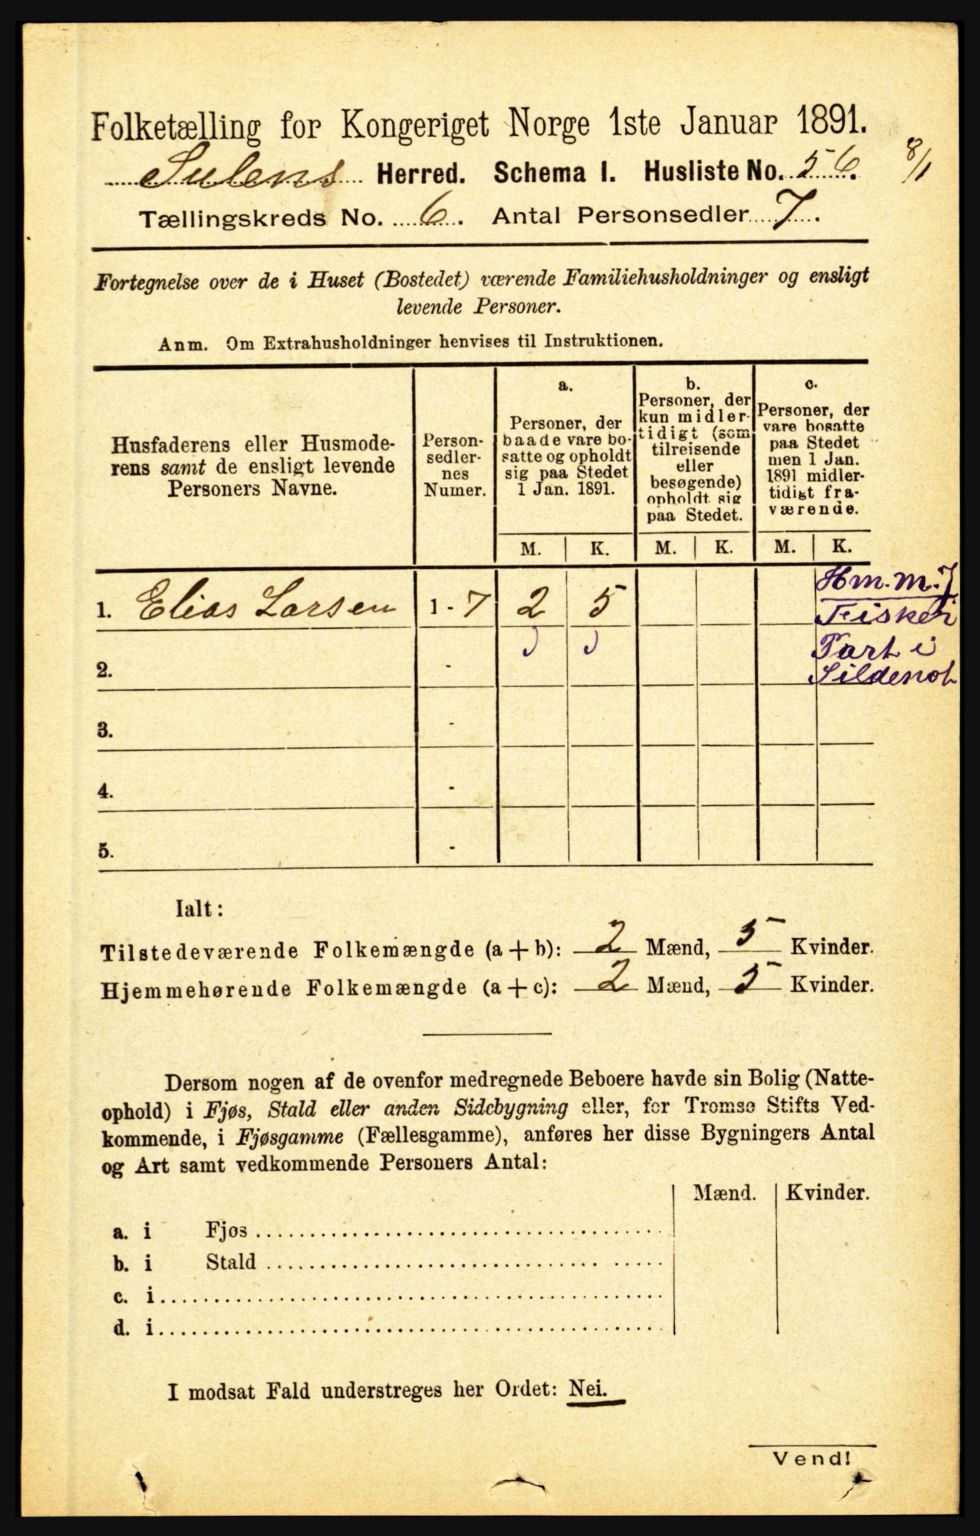 Folketælling for Kongeriget Norge 1ste Januar 1891.
Sulens Herred. Schema I. Husliste No. 56. 8/1
Tællingskreds No. 6. Antal Personsedler 7.
Fortegnelse over de i Huset (Bostedet) værende Familiehusholdninger og ensligt
levende Personer.
Anm. Om Extrahusholdninger henvises til Instruktionen.
Husfaderens eller Husmode-
rens samt de ensligt levende
Personers Navne.
Person-
sedler-
nes
Numer.
a.
Personer, der
baade vare bo-
satte og opholdt
sig paa Stedet
1 Jan. 1891.
b.
Personer, der
kun midler-
tidigt (som
tilreisende
eller
besøgende)
opholdt sig
paa Stedet.
c.
Personer, der
vare bosatte
paa Stedet
men 1 Jan.
1891 midler-
tidigt fra-
værende.
M. K. M. K. M. K.
1. Elias Larsen 1-7 2 5
Hm.m.J
Fisker
Part i
Sildenot
2. -
3. -
4. -
5. -
Ialt:
Tilstedeværende Folkemængde (a+b): 2 Mænd, 5 Kvinder.
Hjemmehørende Folkemængde (a+c): 2 Mænd, 5 Kvinder.
Dersom nogen af de ovenfor medregnede Beboere havde sin Bolig (Natte-
ophold) i Fjøs, Stald eller anden Sidebygning eller, for Tromsø Stifts Ved-
kommende, i Fjøsgamme (Fællesgamme), anføres her disse Bygningers Antal
og Art samt vedkommende Personers Antal:
Mænd. Kvinder.
a. i Fjøs
b. i Stald
c. i
d. i
I modsat Fald understreges her Ordet: Nei.
Vend!